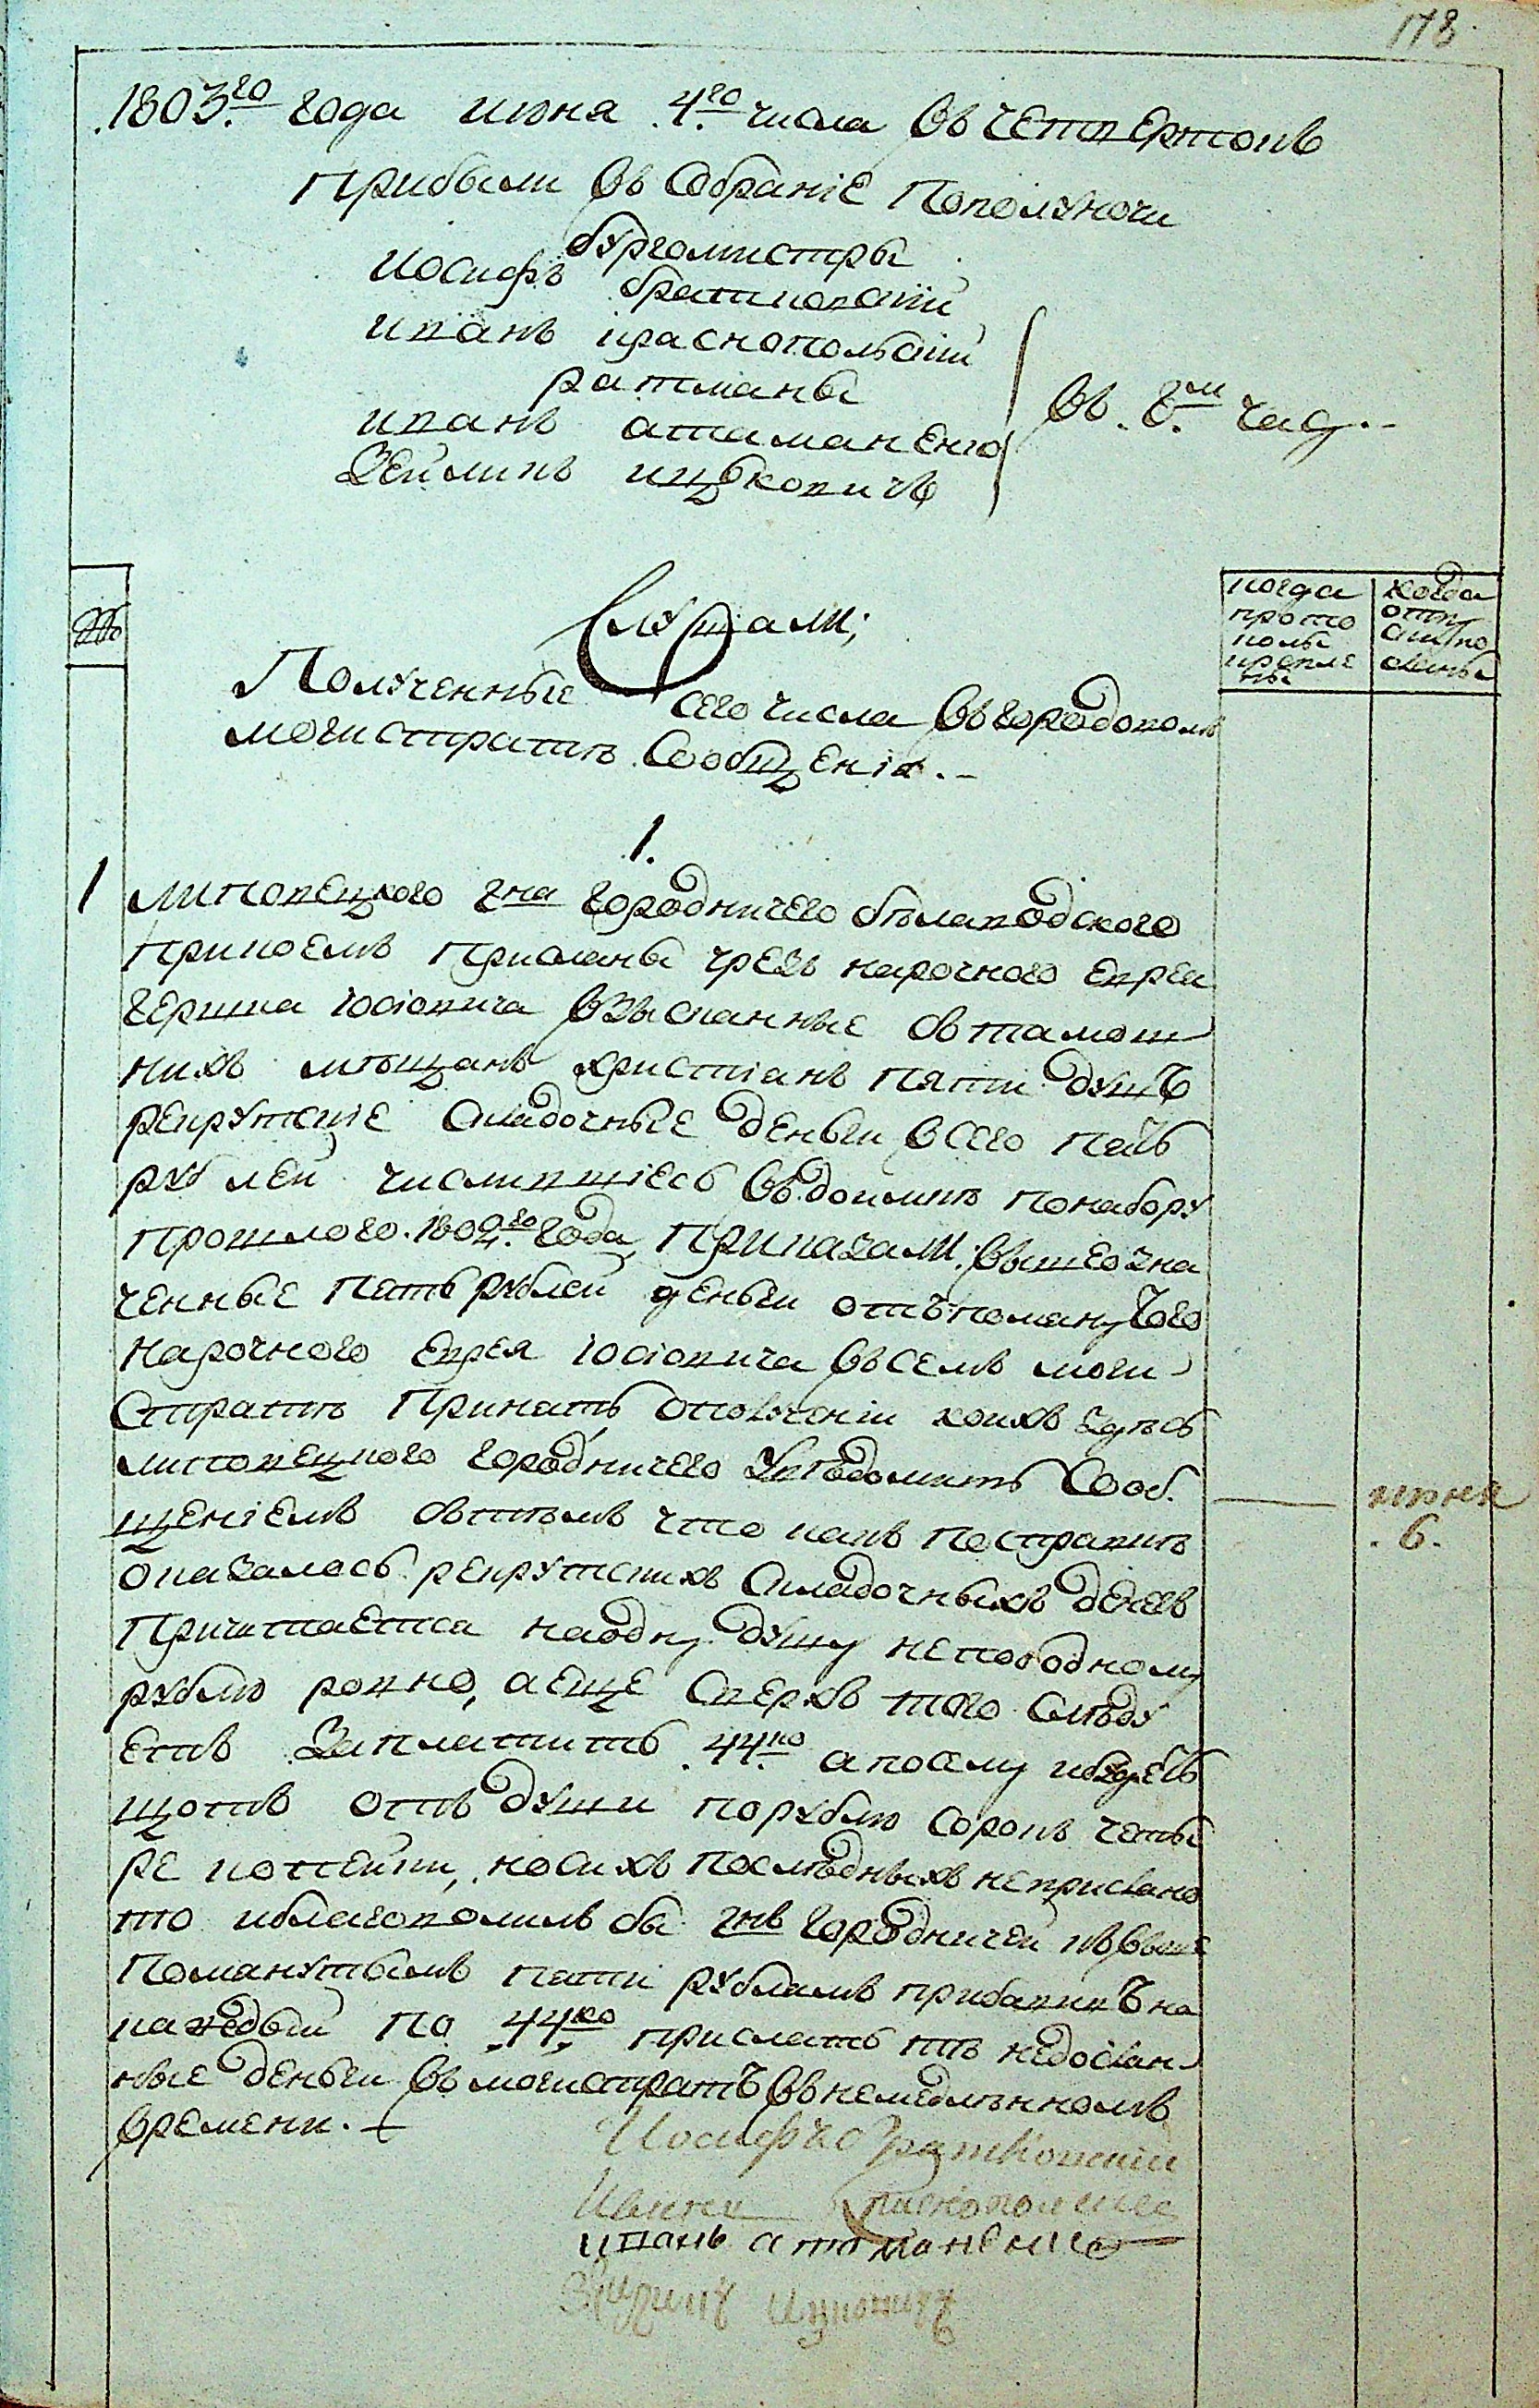 178.
1803.го года июня 4.го числа въ четвертокъ
Прибыли въ Собраніе Пополуночи
бургомистры
Иосифъ братковскій
иванъ краснопольскій
ратманы
иванъ атаманенко
Зейликъ ицковичъ
въ. 8.м час.
№
Слушали;
когда прото колы крепле ны
когда отпу
Полученные сего числа въ городовомъ
могистратѣ Сообщенія.
1.
1 липовецкого гна городничего бѣлаводского
При коемъ Присланы чрезъ нарочного еврея
герша юсіовича взысканные съ тамош
нихъ мѣщанъ христіанъ пяти душъ
рекрутскіе Складочные деньги всего пять
рублей числившіесь въ доимкѣ по набору
прошлого. 1802.го года, Приказали: вышеозна
ченные Пять рублей деньги отъ помянутого
Нарочного еврея юсіовича въ семъ моги
Стратѣ Принять, о получении коихъ здесь
липовецкого городничего Увѣдомить Сооб
щеніемъ съ тѣмъ что какъ по справкѣ
оказалось рекрутскихъ Складочныхъ денегъ
Причитается на одну душу не по одному
рублю ровно, а еще Сверхъ того Слѣду
етъ Заплатить. 44.ко а по сему и
щотъ отъ души по рублю сорокъ четы
ре копейки, но сихъ послѣднихъ неприслано
то и благоволилъ бы гнъ Городничей къ выше
Помянутымъ пяти рублямъ прибавивъ на
каждой по 44ко прислать тѣ недослан
ные деньги въ могистратъ въ немедлѣнномъ
времени.
июня
6.
Иосифъ братковскій
Иванъ краснопольскій
иванъ атаманенко
Зейликъ Ицковичъ